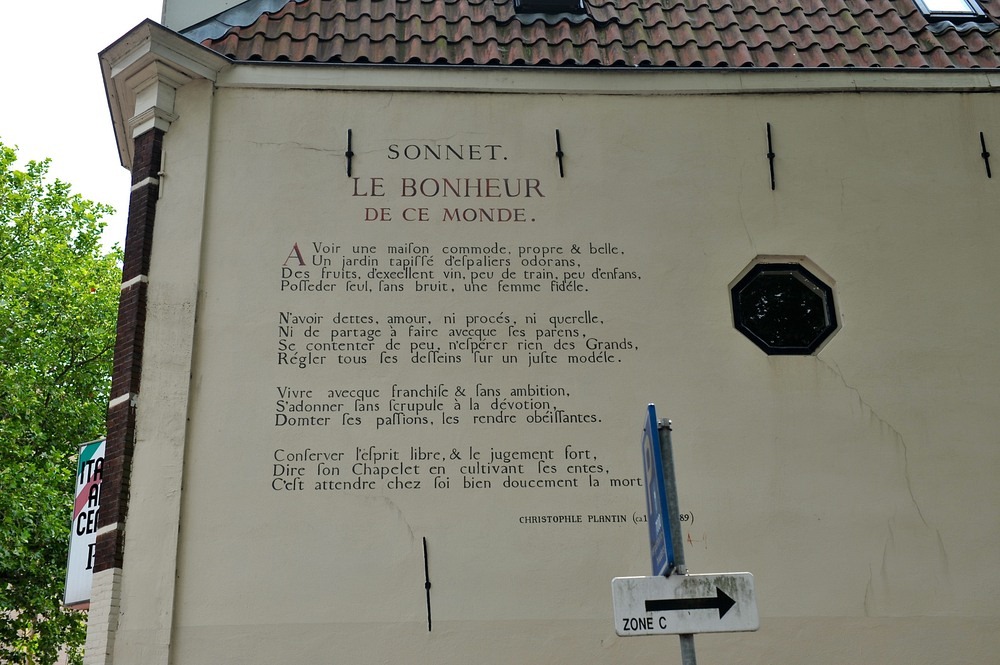 SONNET.
LE BONHEUR
DE CE MONDE.
AVoir une maiſon commode, propre & belle,
Un jardin tapiſſé d'eſpaliers odorans,
Des fruits, d'excellent vin, peu de train, peu d'enfans,
Poſſeder ſeul, ſans bruit, une femme fidéle.
N'avoir dettes, amour, ni procés, ni querelle,
Ni de partage à faire avecque ſes parens,
Se contenter de peu, n'eſpérer rien des Grands,
Régler tous ſes deſſeins ſur un juſte modéle.
Vivre avecque franchiſe & ſans ambition,
S'adonner ſans ſcrupule à la dévotion,
Domter ſes paſſions, les rendre obéiſſantes.
Conſerver l'eſprit libre, & le jugement fort,
Dire ſon Chapelet en cultivant ſes entes,
C'eſt attendre chez ſoi bien doucement la mort
CHRISTOPHLE PLANTIN (ca1 89)
ITA
A
CE
P
ZONE C